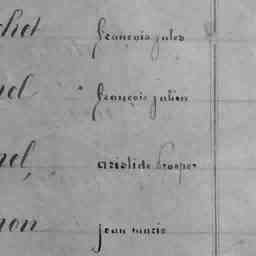 chet françois jules
nel françois julien
nel, aristide Prosper
non jean marie